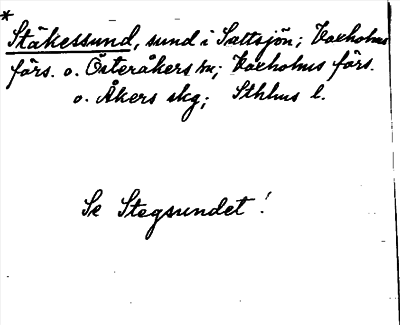 *
Stäkessund, sund i Saltsjön; Vaxholms
förs. o. Österåkers sn; Vaxholms förs.
o. Åkers skg; Sthlms l.
Se Stegsundet!